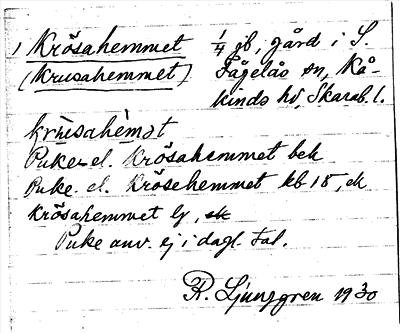 1 Krösahemmet 1/4 jb, gård i S.
(Krusahemmet) Fågelås sn, Kå-
kinds hd, Skarab. l.
krùsahèmət
Puke- el. Krösahemmet bek
Puke el. Krösehemmet kb 18, ek
Krösahemmet lg, ek
Puke anv. ej i dagl. tal.
R. Ljunggren 1930